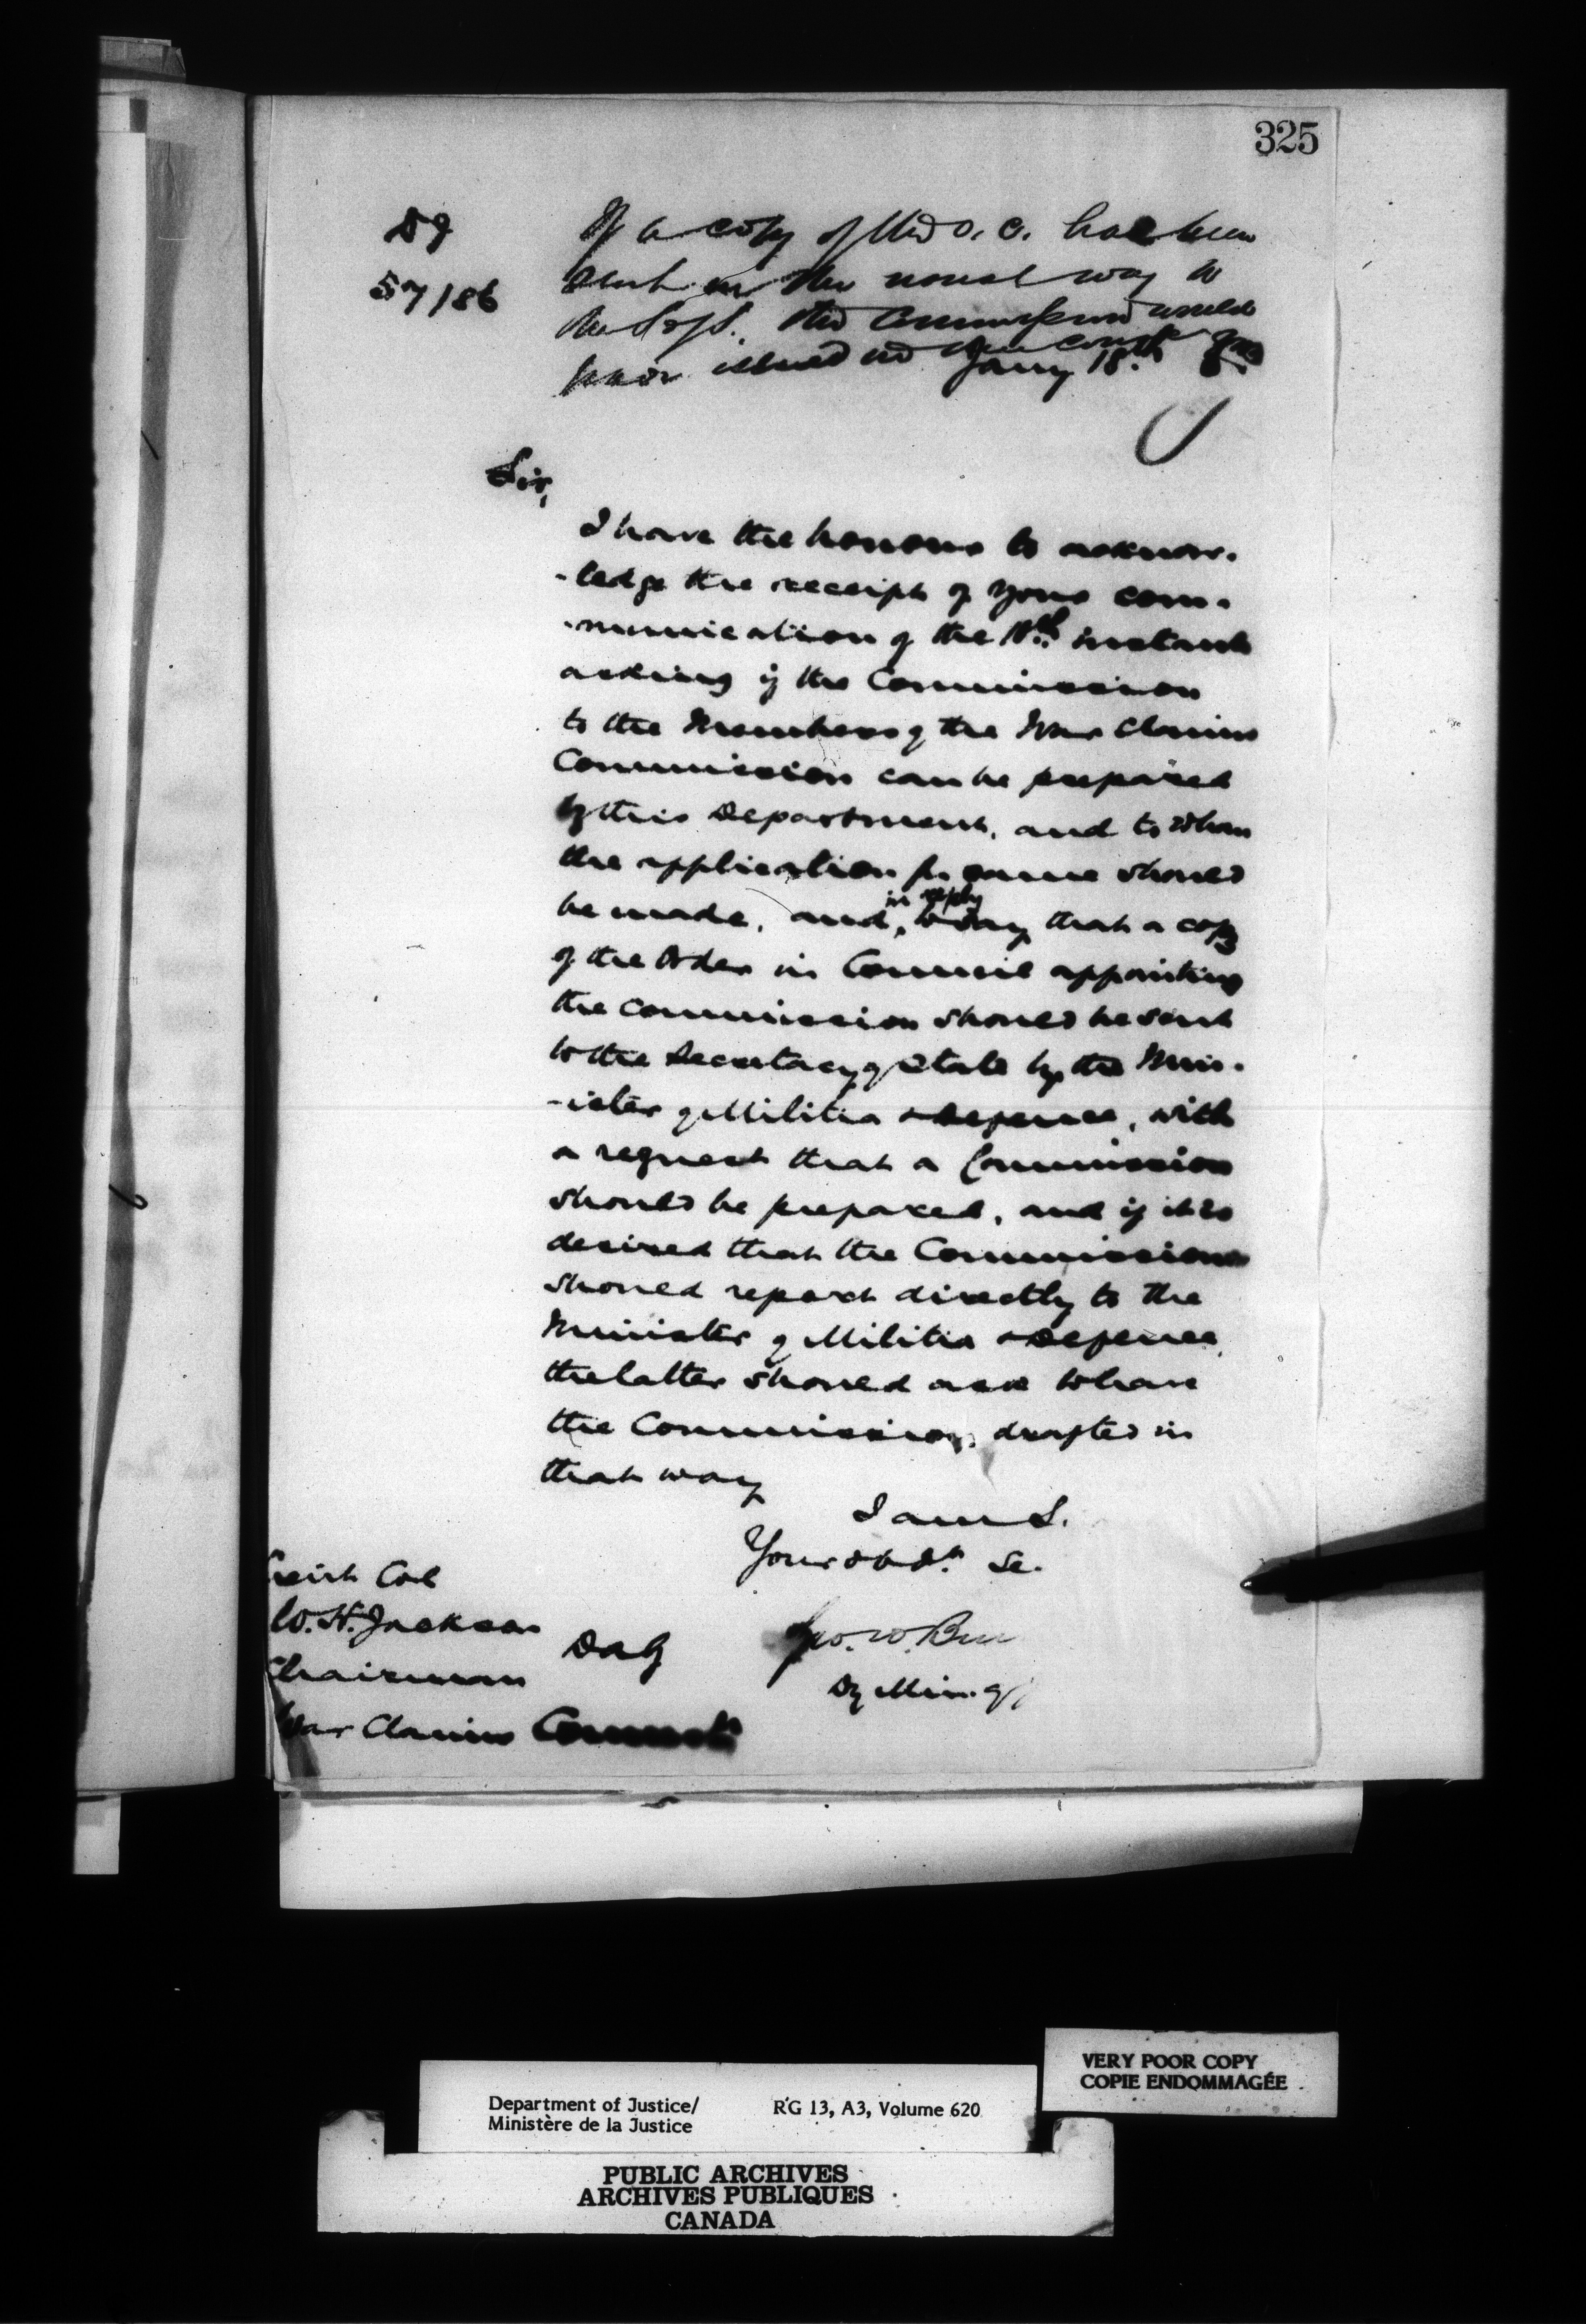 325
DJ
57/86
If a copy of the O. C. had been
sent in the usual way to
the Dept. the Commission would
have issued in due course
Jany 18th
Sir,
I have the honour to acknow-
-ledge the receipt of your com-
-munication of the 18th instant
asking if the Commission
to the Members of the War Claims
Commission can be prepared
by this Department, and to whom
the application for same should
be made, and, in reply to say that a copy
of the Order in Council appointing
the Commission should be sent
to the Secretary of State by the Min-
-ister of Militia & Defence, with
a request that a Commission
should be prepared, and if it is
desired that the Commission
should report directly to the
Minister of Militia & Defence,
the latter should ask to have
the Commission drafted in
that way
I am S.
Your obdt. Se.
Geo. W. Bur
Dy Min. of J
Lieut Col
W. H. Jackson
Chairman
War Claims
DaG
Department of Justice/
Ministère de la Justice
RG 13, A3, Volume 620
VERY POOR COPY
COPIE ENDOMMAGÉE
PUBLIC ARCHIVES
ARCHIVES PUBLIQUES
CANADA